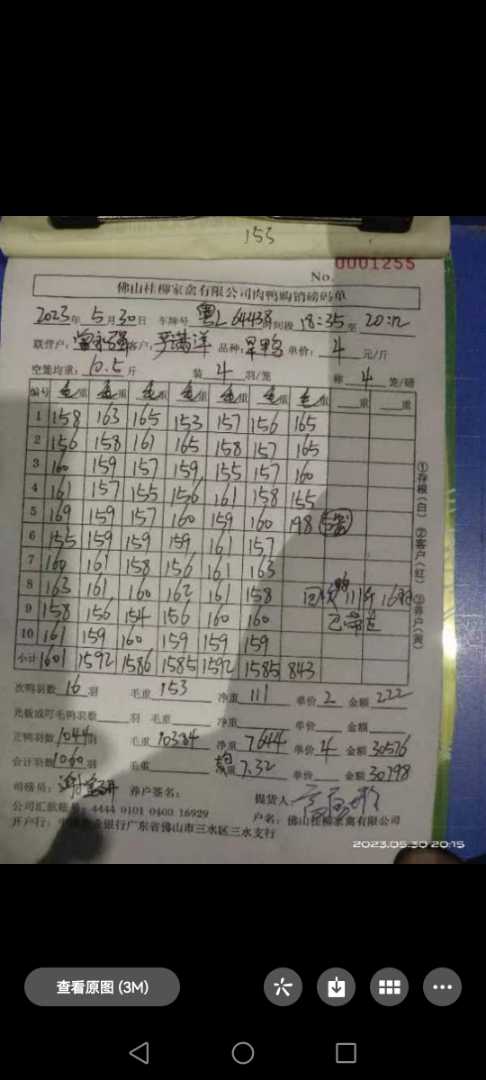 153
No. 0001255
佛山桂柳家禽有限公司肉鸭购销磅码单
2023年 5月30日 车牌号 粤L 64438 时间段 18:35至 20:12
联营户: 客户: 严满洋 品种: 旱鸭 单价: 4 元/斤
空笼均重: 10.5 斤 装 4 羽/笼 称 4 笼/磅
编号 毛重 毛重 毛重 毛重 毛重 毛重 毛重 重 重
1 158 163 165 153 157 156 165
2 156 158 161 165 158 157 165
3 160 159 157 159 155 157 160
4 161 157 155 156 161 158 155
5 169 159 157 160 159 160 198
6 155 159 159 159 161 157
7 160 161 158 156 161 163
8 163 161 160 162 161 158 111斤 16羽
9 158 156 154 156 160 160
10 161 159 160 159 159 159
小计 1601 1592 1586 1585 1592 1585 843
①存根(白) ②客户(红) ③养户(黄)
次鸭羽数 16 羽 毛重 153 净重 111 单价 2 金额 222
光板或叮毛鸭羽数 羽 毛重 净重 单价 金额
正鸭羽数 1044 羽 毛重 10384 净重 7644 单价 4 金额 30576
合计羽数 1060 羽 毛重 均重 7.32 单价 金额 30798
司磅员: 养户签名: 提货人
公司汇款账号: 4444 0101 0400 16929 户名: 佛山桂柳家禽有限公司
开户行: 银行广东省佛山市三水区三水支行
2023.05.30 20:15
查看原图 (3M)